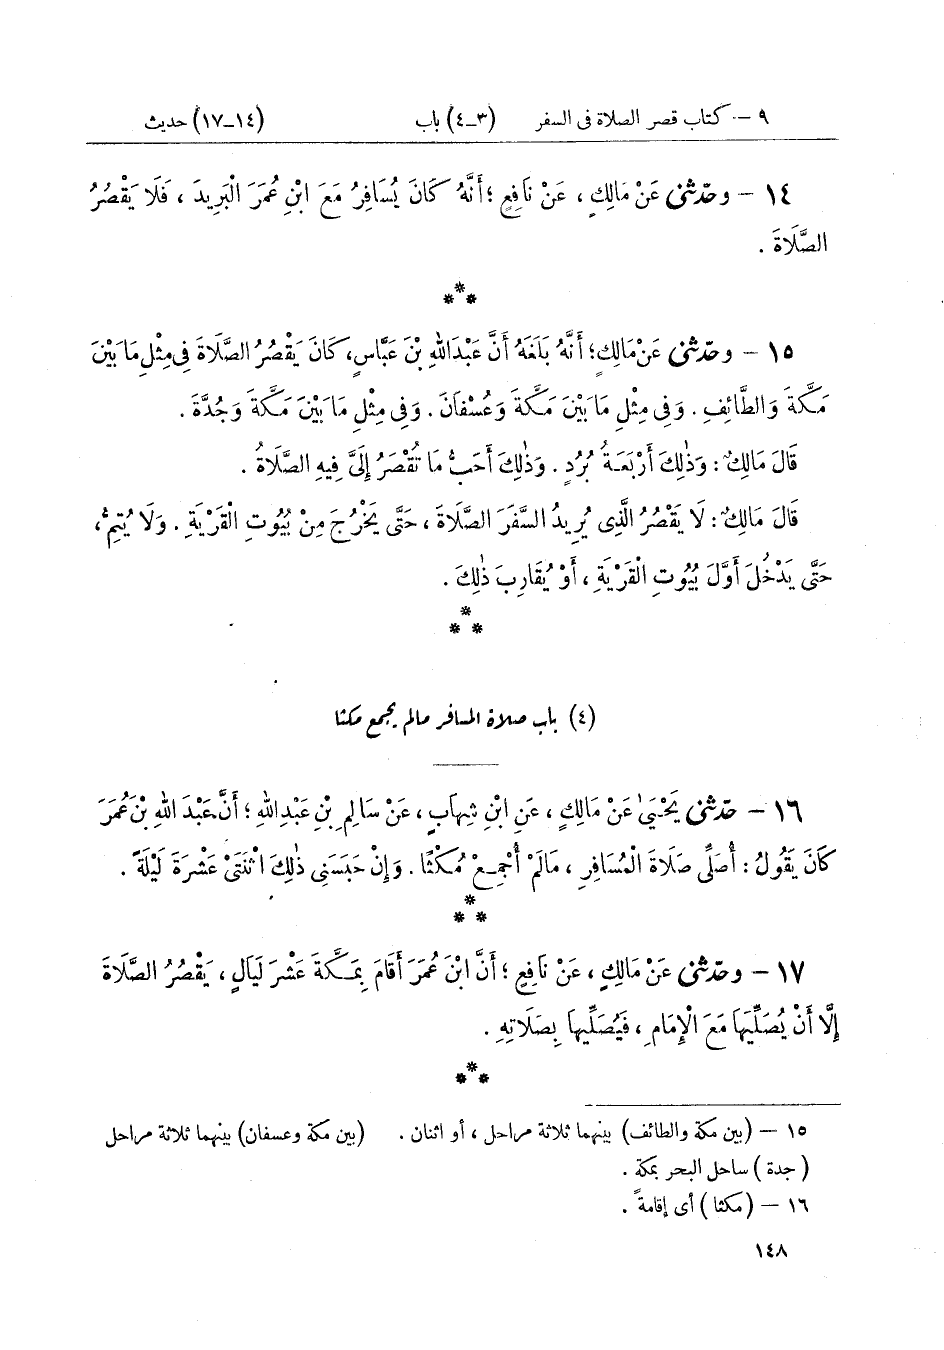 ٩ – كتاب قصر الصلاة فى السفر (٣_٤) باب (١٤_١٧) حديث
١٤ – وحدّثنى عَنْ مَالِكٍ ، عَنْ نَافِعٍ ؛ أَنَّهُ كَانَ يُسَافِرُ مَعَ ابْنِ عُمَرَ الْبَرِيدَ ، فَلَا يَقْصُرُ
الصَّلَاةَ .
***
١٥ – وحدّثنى عَنْ مَالِكٍ ؛ أَنَّهُ بَلَغَهُ أَنَّ عَبْدَ اللهِ بْنَ عَبَّاسٍ، كَانَ يَقْصُرُ الصَّلَاةَ فِى مِثْلِ مَا بَيْنَ
مَكَّةَ وَالطَّائِفِ . وَفِى مِثْلِ مَا بَيْنَ مَكَّةَ وَعُسْفَانَ . وَفِى مِثْلِ مَا بَيْنَ مَكَّةَ وَجُدَّةَ .
قَالَ مَالِكٌ : وَذٰلِكَ أَرْبَعَةُ بُرُدٍ . وَذٰلِكَ أَحَبُّ مَا تُقْصَرُ إِلَىَّ فِيهِ الصَّلَاةُ .
قَالَ مَالِكٌ : لَا يَقْصُرُ الَّذِى يُرِيدُ السَّفَرَ الصَّلَاةَ ، حَتَّى يَخْرُجَ مِنْ بُيُوتِ الْقَرْيَةِ . وَلَا يُتِمُّ،
حَتَّى يَدْخُلَ أَوَّلَ بُيُوتِ الْقَرْيَةِ ، أَوْ يُقَارِبَ ذٰلِكَ .
***
(٤) باب صلاة المسافر مالم يجمع مكثا
١٦ – حدّثنى يَحْيَىٰ عَنْ مَالِكٍ ، عَنِ ابْنِ شِهَابٍ ، عَنْ سَالِمِ بْنِ عَبْدِ اللهِ ؛ أَنَّ عَبْدَ اللهِ بْنَ عُمَرَ
كَانَ يَقُولُ : أُصَلِّى صَلَاةَ الْمُسَافِرِ ، مَالَمْ أُجْمِعْ مُكْثًا . وَإِنْ حَبَسَنِى ذٰلِكَ اثْنَتَىْ عَشْرَةَ لَيْلَةً .
***
١٧ – وحدّثنى عَنْ مَالِكٍ ، عَنْ نَافِعٍ ؛ أَنَّ ابْنَ عُمَرَ أَقَامَ بِمَكَّةَ عَشْرَ لَيَالٍ ، يَقْصُرُ الصَّلَاةَ
إِلَّا أَنْ يُصَلِّيَهَا مَعَ الْإِمَامِ ، فَيُصَلِّيهَا بِصَلَاتِهِ .
***
١٥ – (بين مكة والطائف) بينهما ثلاثة مراحل ، أو اثنان . (بين مكة وعسفان) بينهما ثلاثة مراحل
(جدة) ساحل البحر بمكة .
١٦ – (مكثا) أى إقامةً .
١٤٨